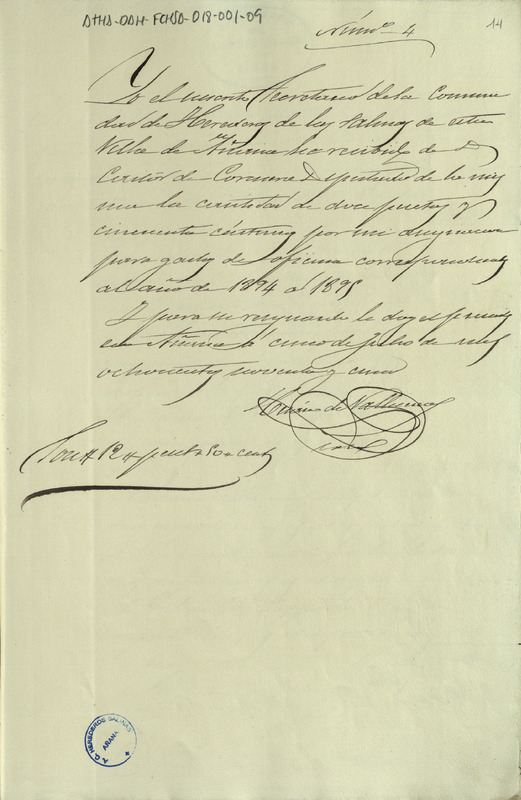 ATHA-DAH-FCHSA-018-001-09
14
Núm.º 4
Yo el infrascrito Secretario de la Comuni
dad de Herederos de las Salinas de esta
Villa de Añana he recibido de D
de Corcuera Diputado de la mis
ma la cantidad de doce pesetas y
cincuenta céntimos por mi asignacion
para gastos de oficina correspondientes
al año de 1894 a 1895
Y para su resguardo le doy el presente
en Añana á cinco de Julio de mil
ochocientos noventa y cinco
Son # 12 # pesetas 50 cents
A. G. HEREDEROS SALINAS
AÑANA